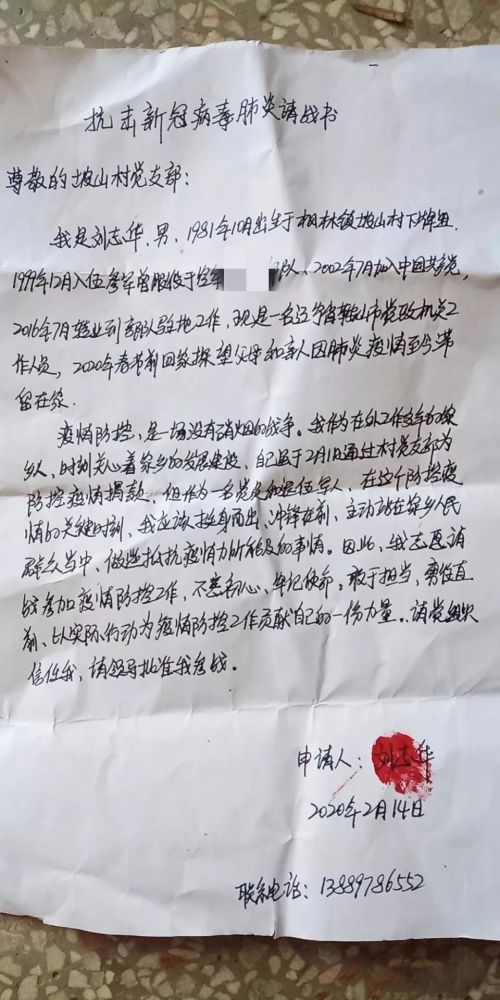 抗击新冠病毒肺炎请战书
尊敬的坡山村党支部：
我是刘志华，男，1981年10月出生于枫林镇坡山村下坪组，
1999年12月入伍参军曾服役于空军队，2002年7月加入中国共产党，
2016年7月转业到部队驻地工作，现是一名辽宁省鞍山市党政机关工
作人员，2020年春节前回家探望父母和亲人因肺炎疫情至今滞
留在家。
疫情防控，是一场没有硝烟的战争。我作为在外工作多年的家
乡人，时刻关心着家乡的发展建设，自己虽于2月1日通过村党支部为
防控疫情捐款，但作为一名党员和退伍军人，在这个防控疫
情的关键时刻，我应该挺身而出、冲锋在前，主动站在家乡人民
群众当中、做些抵抗疫情力所能及的事情。因此，我志愿请
战参加疫情防控工作，不忘初心、牢记使命，敢于担当，勇往直
前、以实际行动为疫情防控工作贡献自己的一份力量。请党组织
信任我，请领导批准我参战。
申请人：刘志华
2020年2月14日
联系电话：13889786552